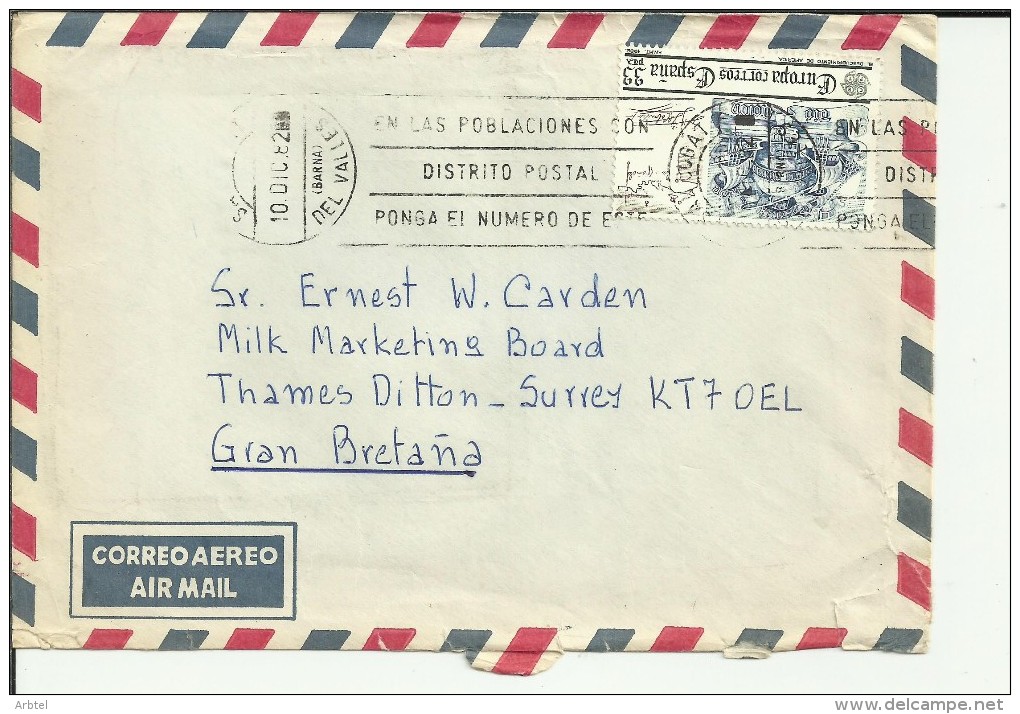 33 PTA
Europa correos España
DESCUBRIMIENTO DE AMERICA
10.DIC.82
(BARNA)
DEL VALLES
EN LAS POBLACIONES CON
DISTRITO POSTAL
PONGA EL NUMERO DE ESTE
CUGAT
EN LAS P
DIST
PONGA EL
Sr. Ernest W. Carden
Milk Marketing Board
Thames Ditton - Surrey KT7 OEL
Gran Bretaña
CORREO AEREO
AIR MAIL
Arbtel
delcampe.net